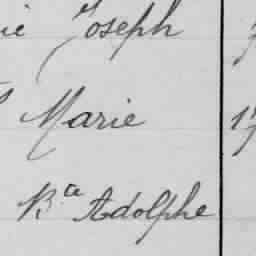 ie Joseph
Marie 17
Bte Adolphe